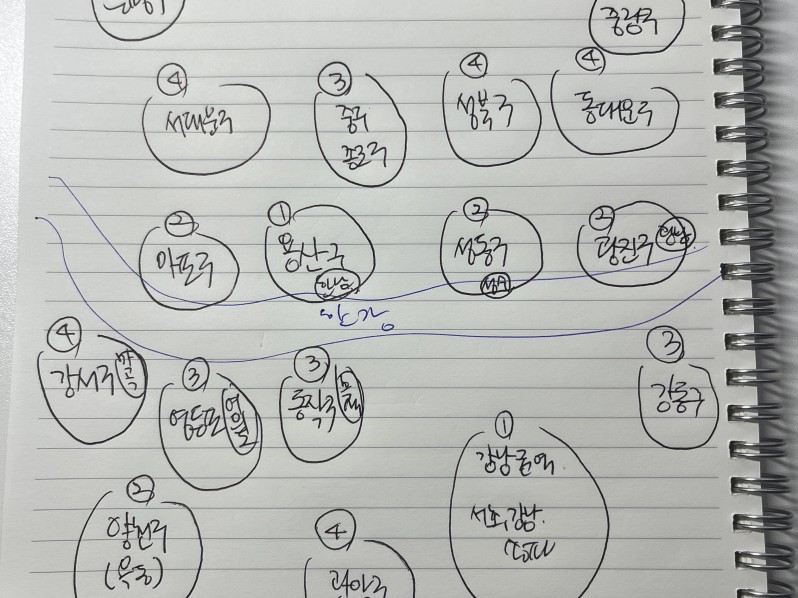 중랑구
④ ③ ④ ④
서대문구 중구 성북구 동대문구
종로구
② ① ② ②
마포구 용산구 성동구 광진구 광남
한남 성수
한강
④ ③ ③ ③
강서구 마곡 영등포 여의도 동작구 강동구
①
강남권역
② ④
양천구 서초, 강남
(목동) 관악구 송파